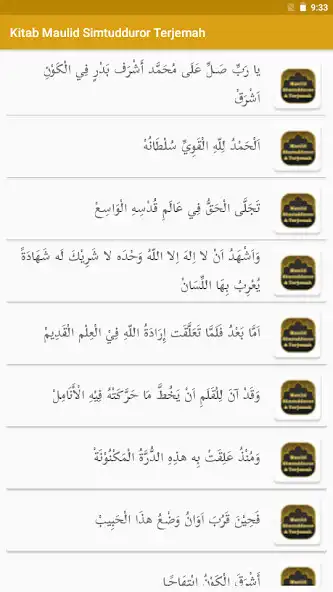 9:33
Kitab Maulid Simtudduror Terjemah
يا رَبِّ صَلِّ عَلَى مُحَمَّد أَشْرَفْ بَدْرٍ فِي الْكَوْنِ
اَشْرَقْ
Maulid
Simtudduror
& Terjemah
اَلْحَمْدُ لِلّهِ الْقَوِيِّ سُلْطَانُهُ
Maulid
Simtudduror
& Terjemah
تَجَلَّى الْحَقُّ فِي عَالَمِ قُدْسِهِ الْوَاسِعْ
Maulid
Simtudduror
& Terjemah
وَاَشْهَدُ اَنْ لا اِلهَ اِلا اللّهُ وَحْدَه لا شَرِيْكَ لَه شَهَادَةً
يُعْرِبُ بِهَا اللِّسَانْ
Maulid
Simtudduror
& Terjemah
اَمَّا بَعْدُ فَلَمَّا تَعَلَّقَت إِرَادَةُ اللّهِ فِيْ الْعِلْم الْقَدِيْمْ
Maulid
Simtudduror
& Terjemah
وَقَدْ آنَ لِلْقَلَمِ اَنْ يَخُطَّ مَا حَرَّكَتْهُ فِيْهِ الْأَنَامِلْ
Maulid
Simtudduror
& Terjemah
وَمُنْذُ عَلِقَتْ بِه هذِهِ الدُّرَّةُ الْمَكْنُوْنَةْ
Maulid
Simtudduror
& Terjemah
فَحِيْنَ قَرُبَ اَوَانُ وَضْعُ هذَا الْحَبِيبْ
Maulid
Simtudduror
& Terjemah
أَشْرَقَ الْكَوْنُ ابْتِهَاجًا
Maulid
Simtudduror